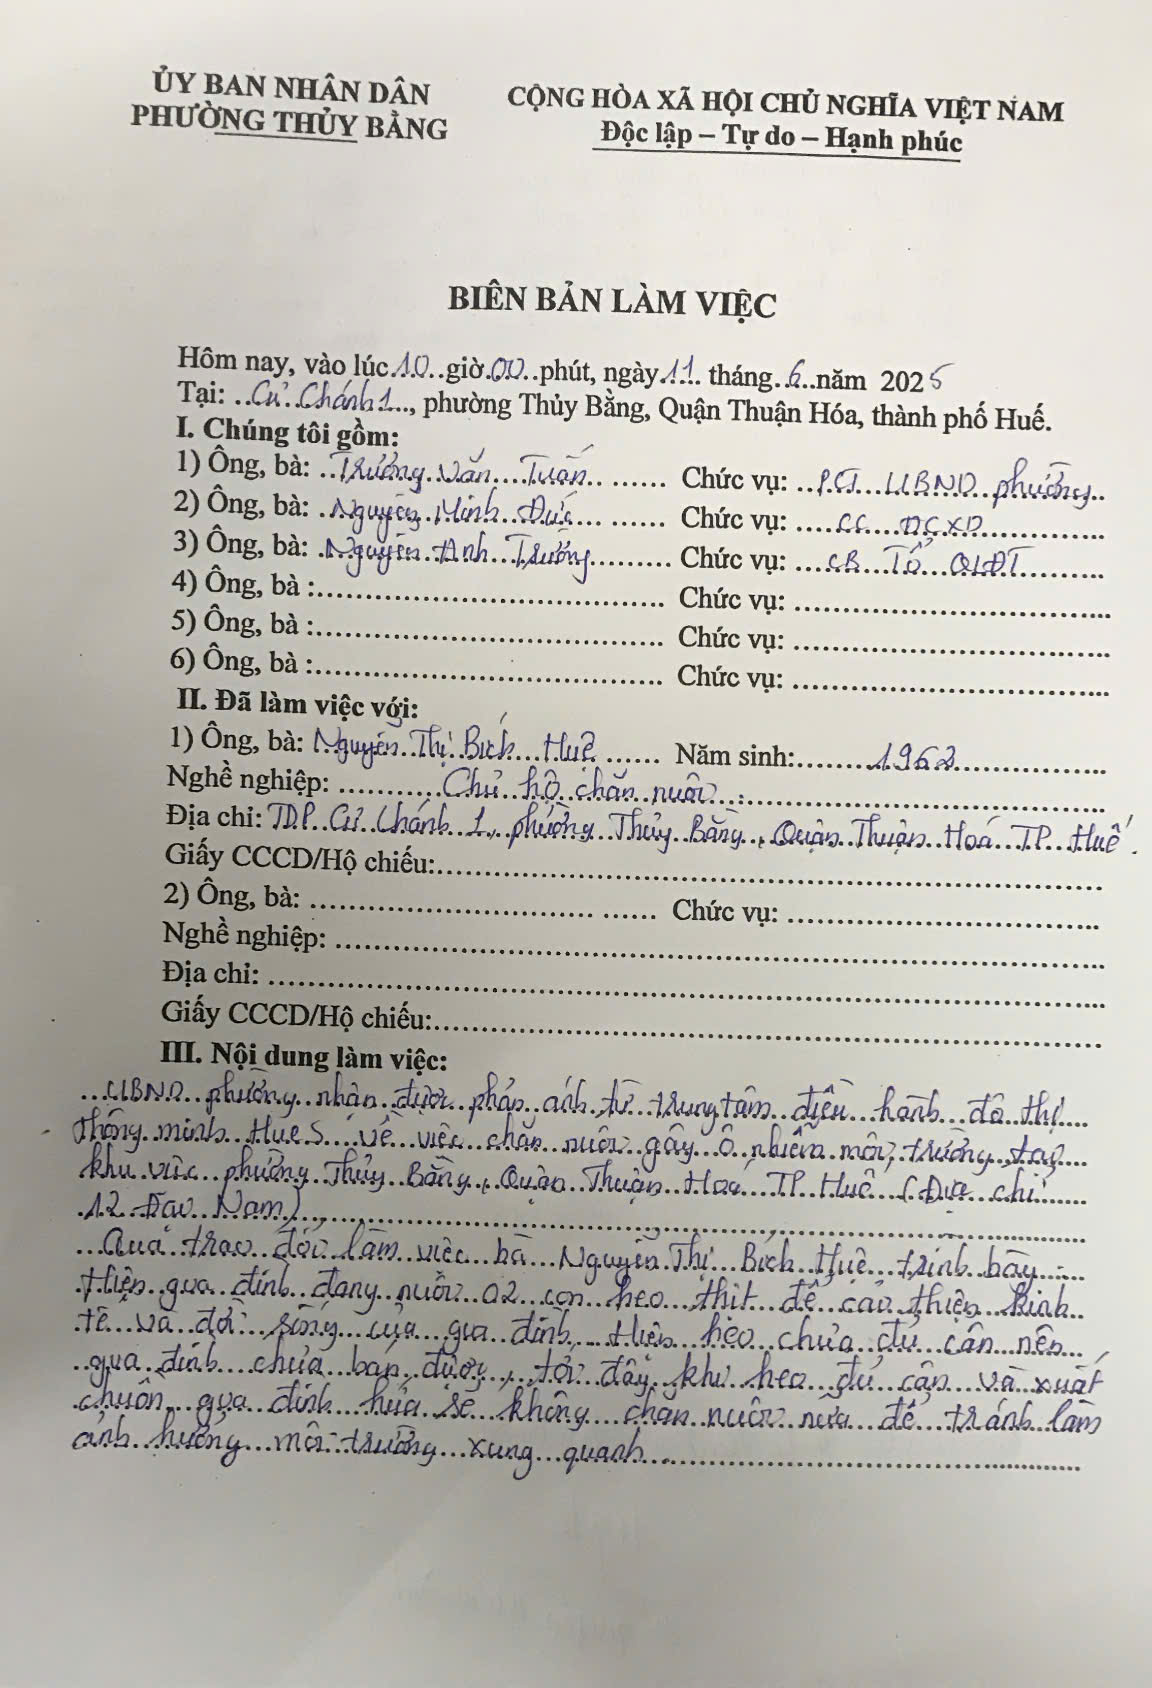 ỦY BAN NHÂN DÂN
PHƯỜNG THỦY BẰNG
CỘNG HÒA XÃ HỘI CHỦ NGHĨA VIỆT NAM
Độc lập – Tự do – Hạnh phúc
BIÊN BẢN LÀM VIỆC
Hôm nay, vào lúc 10 giờ 00 phút, ngày 11 tháng 6 năm 2025
Tại: Cư Chánh 1, phường Thủy Bằng, Quận Thuận Hóa, thành phố Huế.
I. Chúng tôi gồm:
1) Ông, bà: Trương Văn Tuấn Chức vụ: PCT UBND phường
2) Ông, bà: Nguyễn Minh Đức Chức vụ: CC ĐCXD
3) Ông, bà: Nguyễn Anh Trường Chức vụ: CB Tổ QLĐT
4) Ông, bà : Chức vụ:
5) Ông, bà : Chức vụ:
6) Ông, bà : Chức vụ:
II. Đã làm việc với:
1) Ông, bà: Nguyễn Thị Bích Huê Năm sinh: 1962
Nghề nghiệp: Chủ hộ chăn nuôi
Địa chỉ: TDP Cư Chánh 1, phường Thủy Bằng, Quận Thuận Hoá TP Huế.
Giấy CCCD/Hộ chiếu:
2) Ông, bà: Chức vụ:
Nghề nghiệp:
Địa chỉ:
Giấy CCCD/Hộ chiếu:
III. Nội dung làm việc:
UBND phường nhận được phản ánh từ trung tâm điều hành đô thị
thông minh Hue S về việc chăn nuôi gây ô nhiễm môi trường tại
khu vực phường Thủy Bằng, Quận Thuận Hoá TP Huế (Địa chỉ
12 Đài Nam)
Quá trao đổi làm việc bà Nguyễn Thị Bích Huê trình bày:
Hiện gia đình đang nuôi 02 con heo thịt để cải thiện kinh
tế và đời sống của gia đình. Hiện heo chưa đủ cân nên
gia đình chưa bán được, tới đây khi heo đủ cân và xuất
chuồn gia đình hứa sẽ không chăn nuôi nữa để tránh làm
ảnh hưởng môi trường xung quanh